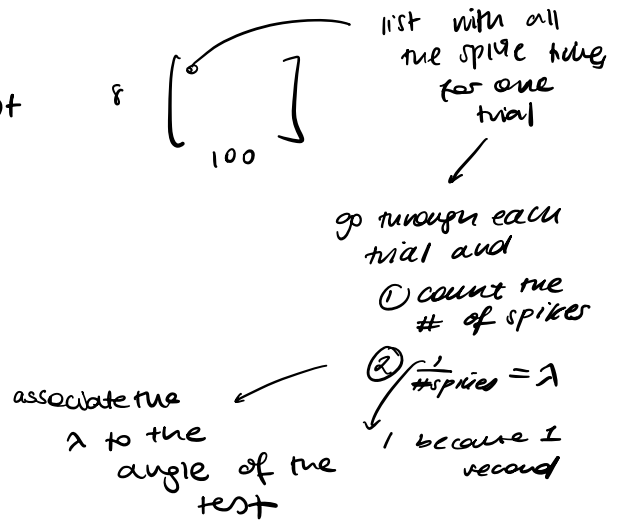 list with all
the spike times
for one
trial
ot
8
100
go through each
trial and
① count the
# of spikes
② 1/#spikes = λ
1 because 1
second
associate the
λ to the
angle of the
test